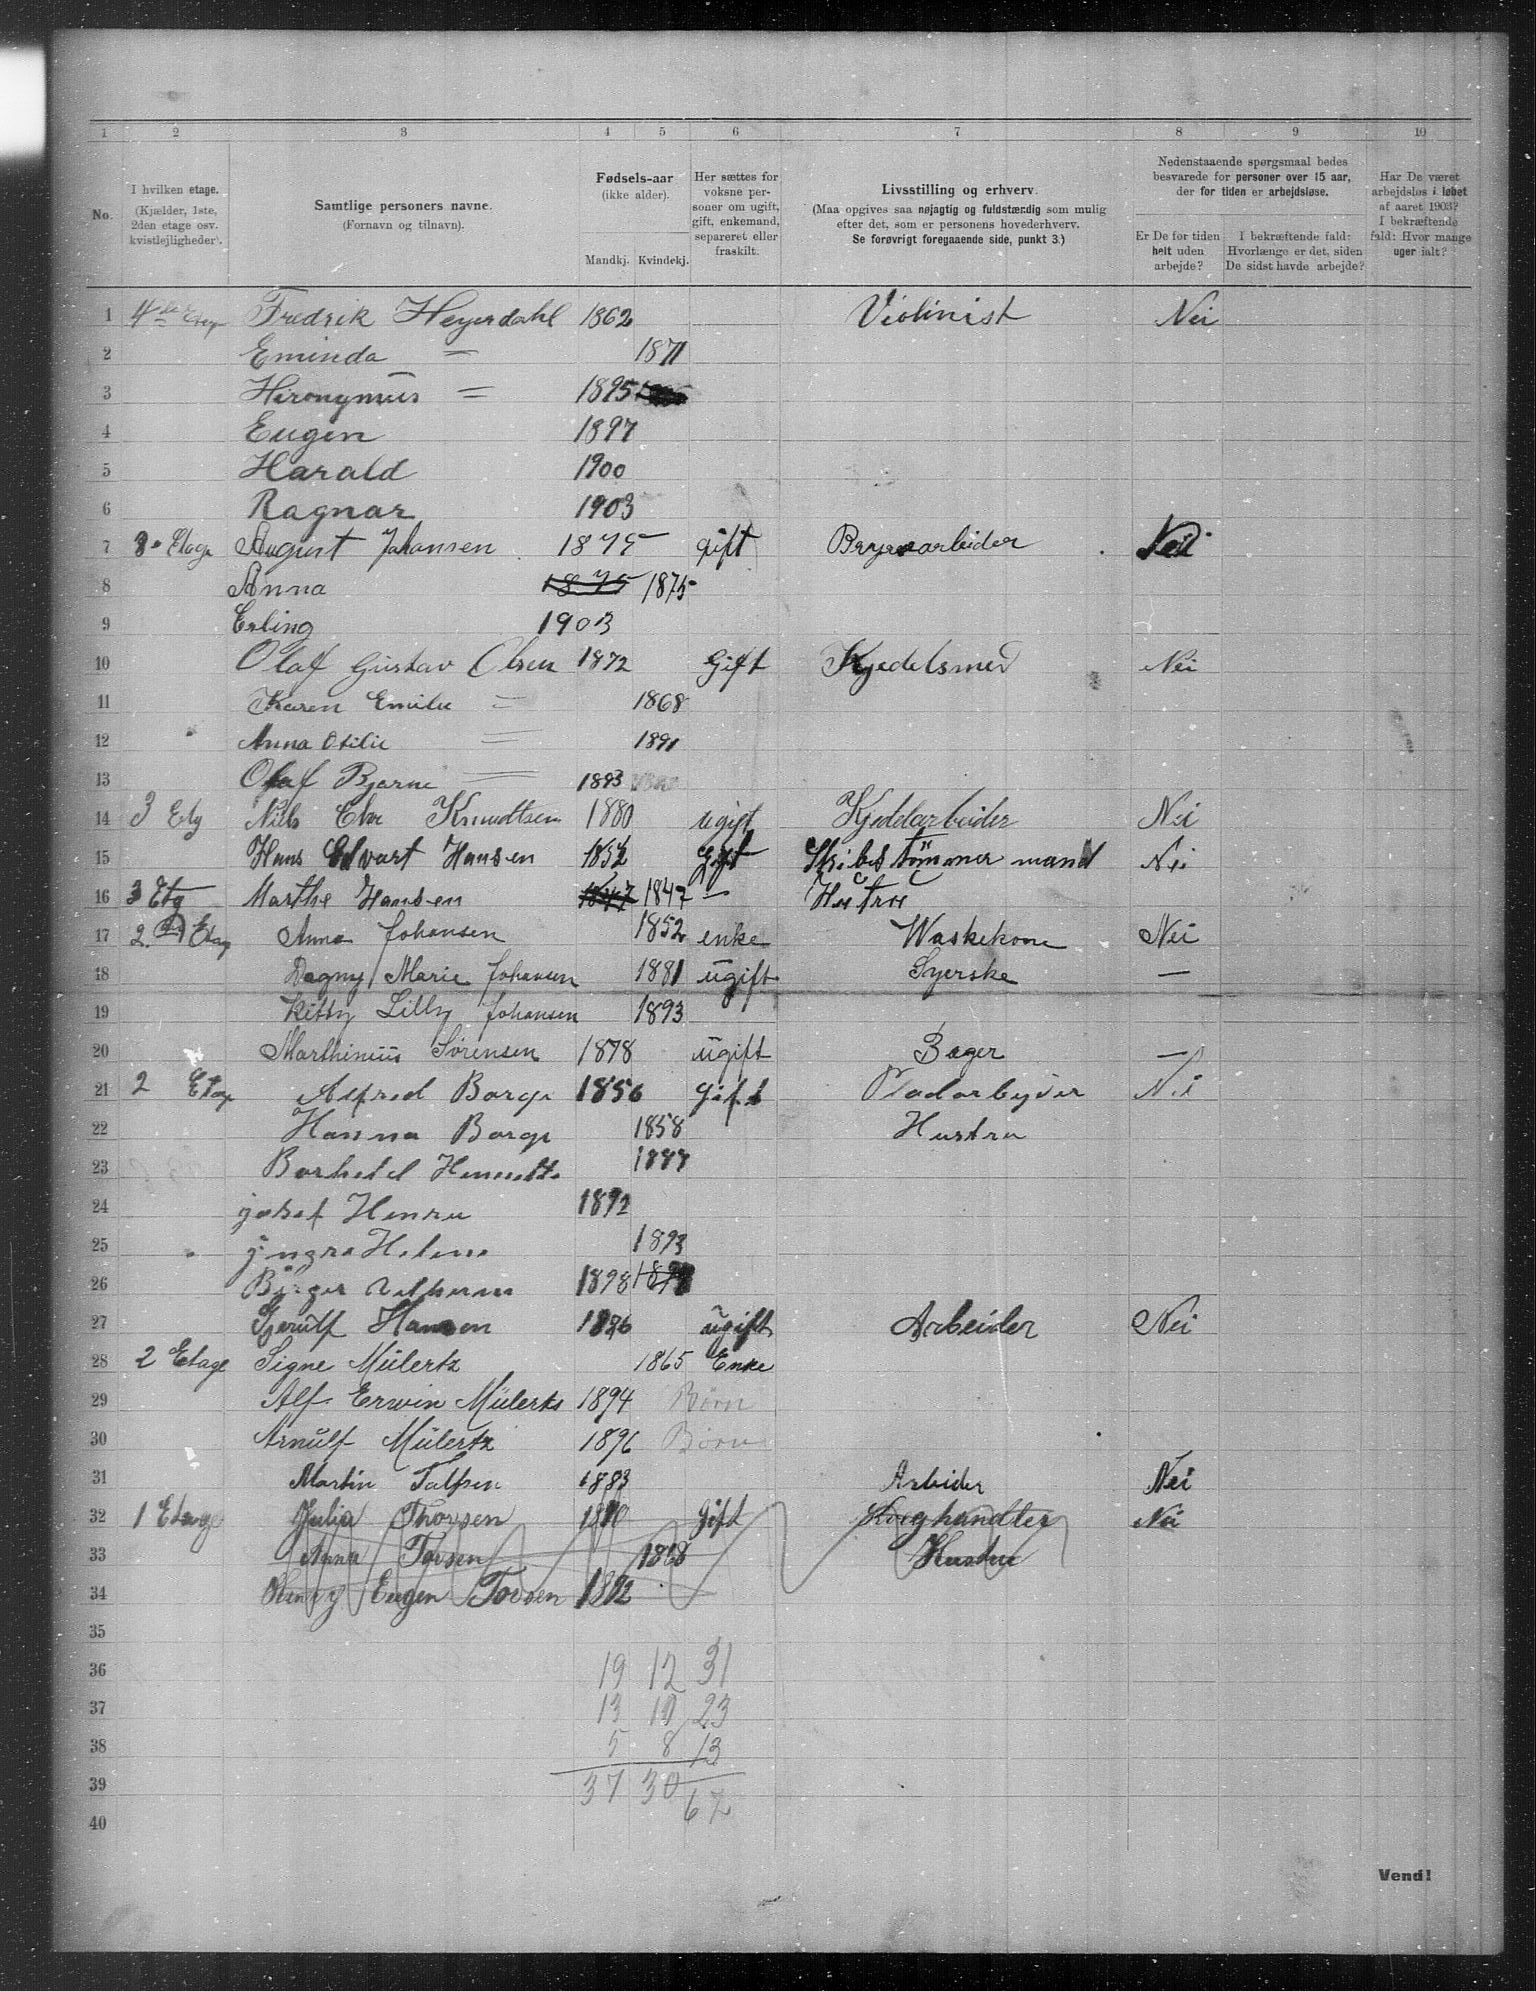 1 2 3 4 5 6 7 8 9 10
No.
I hvilken etage. (Kjælder, 1ste, 2den etage osv. kvistlejligheder).
Samtlige personers navne. (Fornavn og tilnavn).
Fødsels-aar (ikke alder).
Mandkj. Kvindekj.
Her sættes for voksne personer om ugift, gift, enkemand, separeret eller fraskilt.
Livsstilling og erhverv.
(Maa opgives saa nøjagtig og fuldstændig som mulig efter det, som er personens hovederhverv.
Se forøvrigt foregaaende side, punkt 3.)
Nedenstaaende spørgsmaal bedes besvarede for personer over 15 aar, der for tiden er arbejdsløse.
Er De for tiden helt uden arbejde?
I bekræftende fald: Hvorlænge er det, siden De sidst havde arbejde?
Har De været arbejdsløs i løbet af aaret 1903? I bekræftende fald: Hvor mange uger ialt?
1 4de Etage Fredrik Heyerdahl 1862 Violinist Nei
2 Eminda = 1871
3 Hironymus = 1895
4 Eugen 1897
5 Harald 1900
6 Ragnar 1903
7 3 Etage August Johansen 1875 gift Bryggarbeider Nei
8 Anna 1875 1875
9 Erling 1903
10 Olaf Gustav Olsen 1872 Gift Kjedelsmed Nei
11 Karen Emilie = 1868
12 Anna Otilie = 1891
13 Olaf Bjarne = 1893
14 3 Etg Nils Chr Knudtsen 1880 ugift Kjedelarbeider Nei
15 Hans Edvart Hansen 1852 Gift Skibstømmermand Nei
16 3 Etg Marthe Hansen 1847 1847 — Hustru
17 2. Etag Anna Johansen 1852 enke Waskekone Nei
18 Dagny Marie Johansen 1881 ugift Syerske —
19 Kitty Lilly Johansen 1893
20 Marthinius Sørensen 1878 ugift Bager —
21 2 Etage Alfred Borge 1856 gift Pladarbejder Nei
22 Hanna Borge 1858 Hustru
23 Borhild
24 1892
25 Helene 1893
26 Birger 1898
27 Gjerulf Hansen ugift Arbeider Nei
28 2 Etage Signe Mülertz 1865 Enke
29 Alf Erwin Mülertz 1894 Børn
30 Arnulf Mülertz 1896 Børn
31 Martin 1883 Arbider Nei
32 1 Etage Julia Thorsen gift Nei
33 Anna Torsen 1868 Hustru
34 Henry Eugen Torsen 1892
35
36 19 12 31
37 13 10 23
38 5 8 13
39 37 30 67
40
Vend!